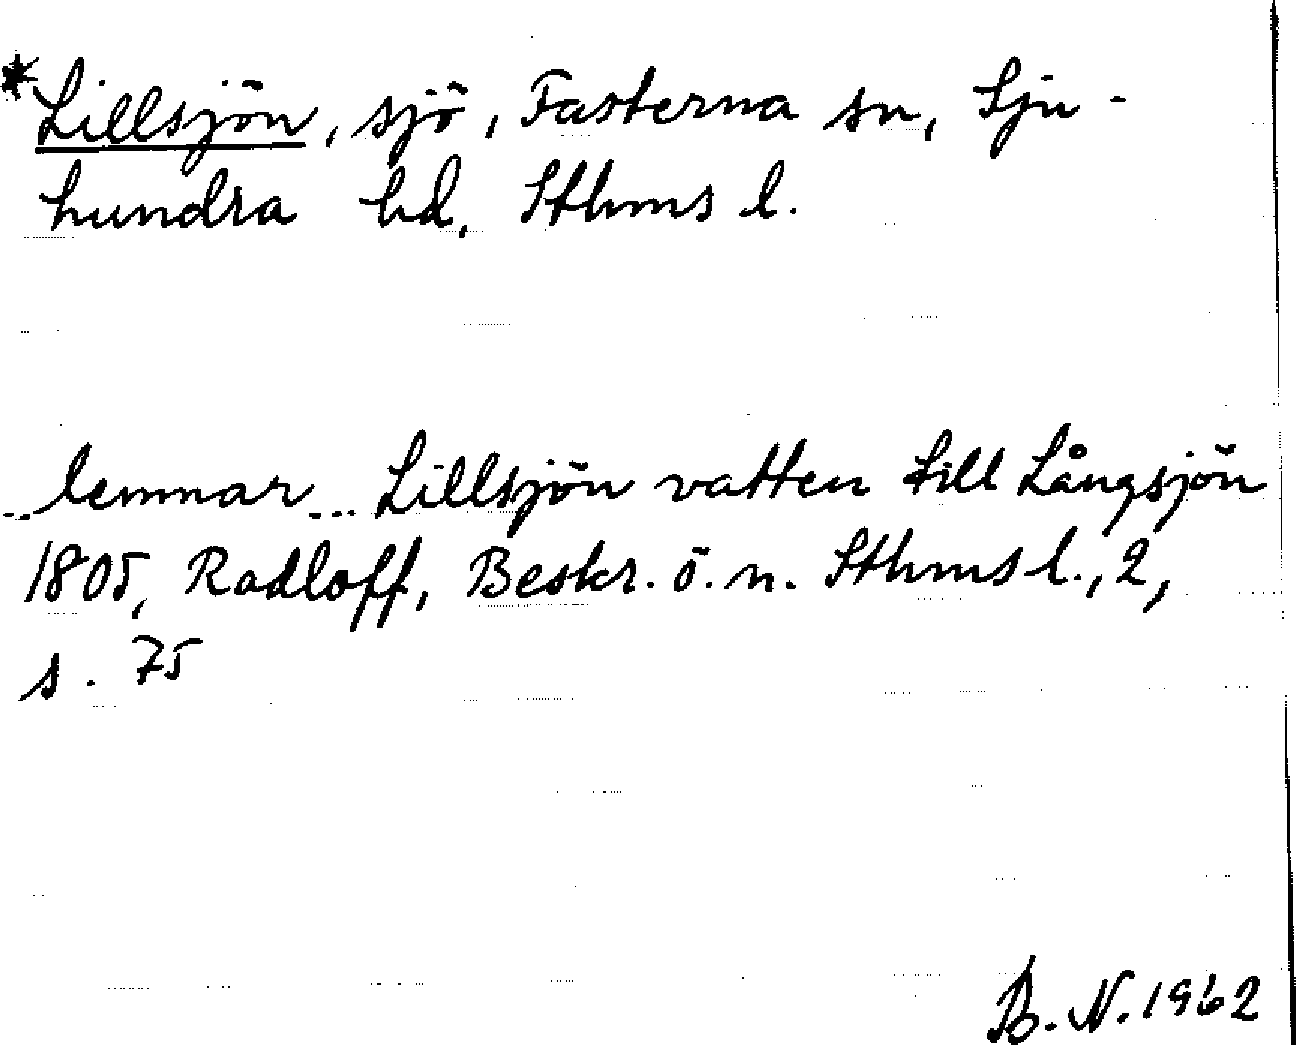 *Lillsjön, sjö, Fasterna sn, Sju-
hundra hd, Sthms l.
...lemnar... Lillsjön vatten till Långsjön
1805, Radloff, Beskr. ö. n. Sthms l., 2,
s. 75
B. N. 1962